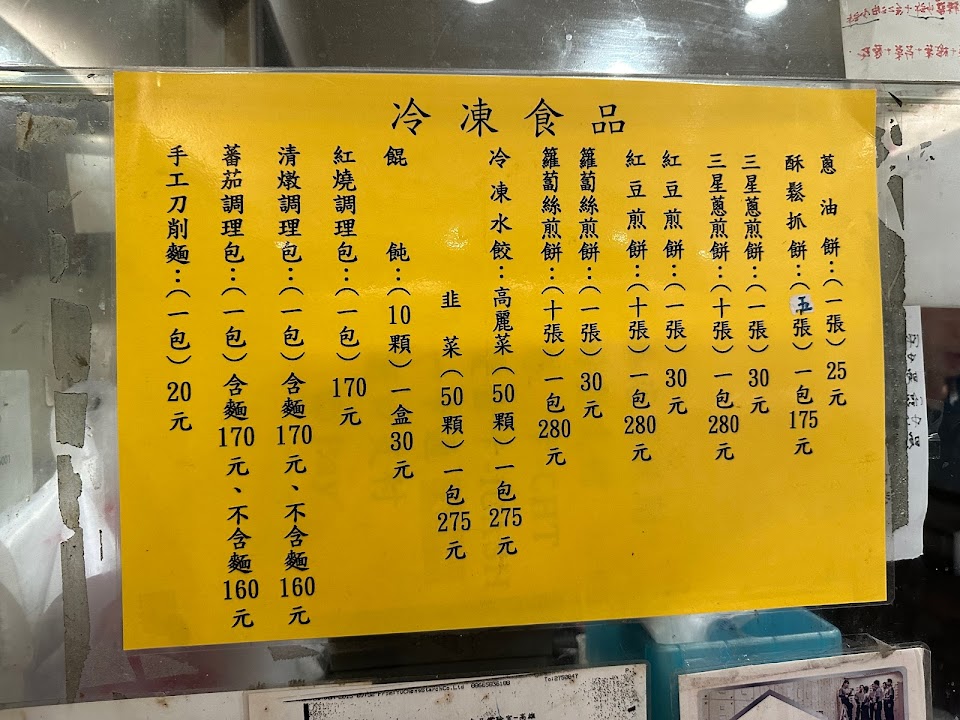 冷凍食品
蔥油餅:(一張)25元
酥鬆抓餅:(五張)一包175元
三星蔥煎餅:(一張)30元
三星蔥煎餅:(十張)一包280元
紅豆煎餅:(一張)30元
紅豆煎餅:(十張)一包280元
籮蔔絲煎餅:(一張)30元
籮蔔絲煎餅:(十張)一包280元
冷凍水餃:高麗菜(50顆)一包275元
韭菜(50顆)一包275元
餛飩:(10顆)一盒30元
紅燒調理包:(一包)170元
清燉調理包:(一包)含麵170元、不含麵160元
蕃茄調理包:(一包)含麵170元、不含麵160元
手工刀削麵:(一包)20元